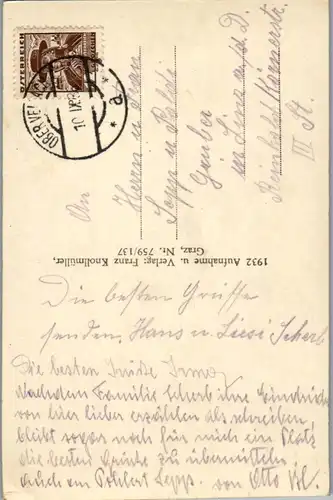 ÖSTERREICH
OBERVELLACH
10.IX.
* a *
An
Herrn u Frau
Sepp u Poldi
Gruber
in Linz a/d. D.
Reinhold Körnerstr.
III St.
1932 Aufnahme u. Verlag: Franz Knollmüller,
Graz, Nr. 759/137
Die besten Grüsse
senden Hans u. Liesi Scherb
Die besten Grüße Irma
Nachdem Familie Scherb ihre Eindrücke
von hier lieber erzählen als schreiben
bleibt sogar noch für mich ein Platz
die besten Grüße zu übermitteln
auch an Sepp. von Otto